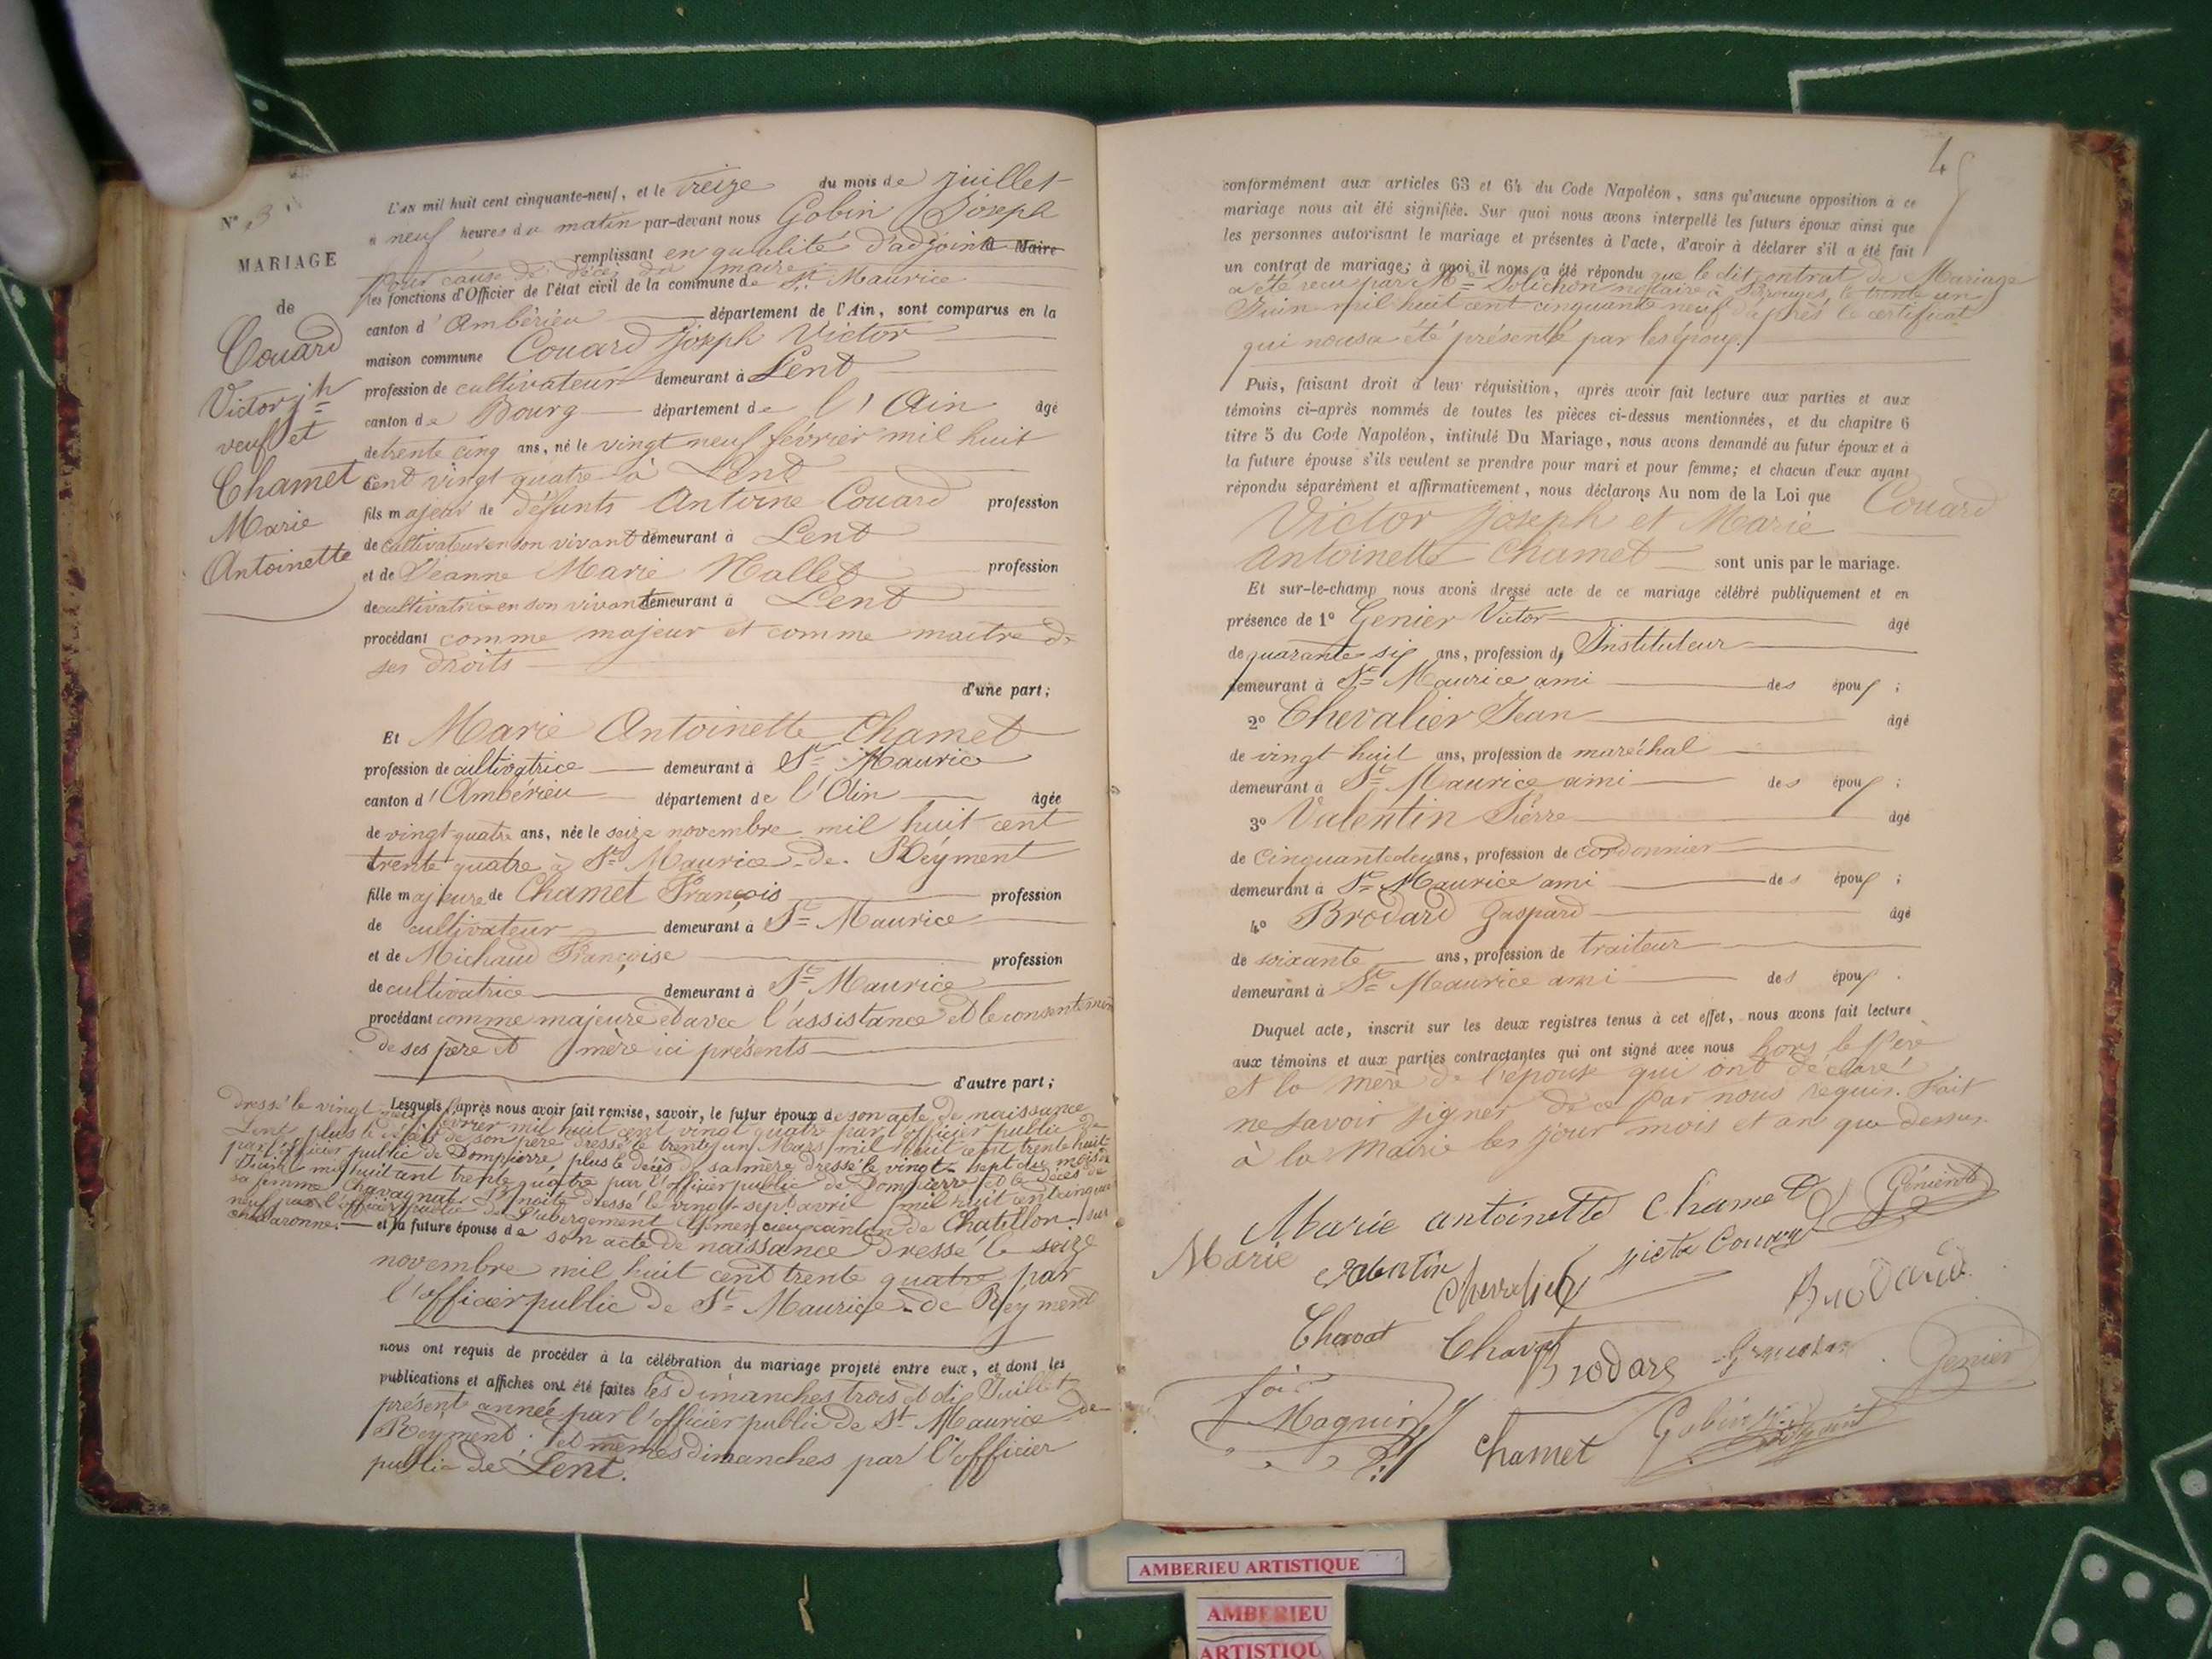 N° 3
MARIAGE
de
Couard
Victor jh
veuf et
Chamet
Marie
Antoinette
L'AN mil huit cent cinquante-neuf, et le treize du mois de juillet
à neuf heures du matin par-devant nous Gobin Joseph
remplissant en qualité d'adjoint Maire
pour cause de décès du maire
les fonctions d'Officier de l'état civil de la commune de St Maurice
canton d'Ambérieu département de l'Ain, sont comparus en la
maison commune Couard Joseph Victor
profession de cultivateur demeurant à Lent
canton de Bourg département de l'Ain âgé
de trente cinq ans, né le vingt neuf février mil huit
cent vingt quatre à Lent
fils majeur de défunts Antoine Couard profession
de cultivateur en son vivant demeurant à Lent
et de Jeanne Marie Nallet profession
de cultivatrice en son vivant demeurant à Lent
procédant comme majeur et comme maitre de
ses droits
d'une part;
Et Marie Antoinette Chamet
profession de cultivatrice demeurant à St Maurice
canton d'Ambérieu département de l'Ain âgée
de vingt-quatre ans, née le seize novembre mil huit cent
trente quatre à St Maurice-de-Réyment
fille majeure de Chamet François profession
de cultivateur demeurant à St Maurice
et de Michaud Françoise profession
de cultivatrice demeurant à St Maurice
procédant comme majeure et avec l'assistance et le consentement
de ses père et mère ici présents
d'autre part;
Lesquels, après nous avoir fait remise, savoir, le futur époux de son acte de naissance
dressé le vingt neuf février mil huit cent vingt quatre par l'officier public de
Lent, plus le décès de son père dressé le trente un Mars mil huit cent trente huit
par l'officier public de Dompierre, plus le décès de sa mère dressé le vingt-sept du mois de
Juin mil huit cent trente quatre par l'officier public de Dompierre et le décès de
sa femme Chavagnat dressé le vingt-sept avril mil huit cent cinquante
neuf par l'officier public de L'abergement Clémenciat canton de Chatillon-sur
chalaronne. et la future épouse de son acte de naissance dressé le seize
novembre mil huit cent trente quatre par
l'officier public de St Maurice-de-Réyment
nous ont requis de procéder à la célébration du mariage projeté entre eux, et dont les
publications et affiches ont été faites les dimanches trois et dix Juillet
présente année par l'officier public de St Maurice de
Réyment et mêmes dimanches par l'officier
public de Lent.
conformément aux articles 63 et 64 du Code Napoléon, sans qu'aucune opposition à ce
mariage nous ait été signifiée. Sur quoi nous avons interpellé les futurs époux ainsi que
les personnes autorisant le mariage et présentes à l'acte, d'avoir à déclarer s'il a été fait
un contrat de mariage; à quoi il nous a été répondu que le dit contrat de Mariage
a été reçu par Me notaire à le trente un
Juin mil huit cent cinquante neuf d'après le certificat
qui nous a été présenté par les époux.
Puis, faisant droit à leur réquisition, après avoir fait lecture aux parties et aux
témoins ci-après nommés de toutes les pièces ci-dessus mentionnées, et du chapitre 6
titre 5 du Code Napoléon, intitulé Du Mariage, nous avons demandé au futur époux et à
la future épouse s'ils veulent se prendre pour mari et pour femme; et chacun d'eux ayant
répondu séparément et affirmativement, nous déclarons Au nom de la Loi que Couard
Victor Joseph et Marie
Antoinette Chamet sont unis par le mariage.
Et sur-le-champ nous avons dressé acte de ce mariage célébré publiquement et en
présence de 1° Genier Victor âgé
de quarante six ans, profession d' Instituteur
demeurant à St Maurice ami des époux;
2° Chevalier Jean âgé
de vingt huit ans, profession de maréchal
demeurant à St Maurice ami des époux;
3° Valentin Pierre âgé
de cinquante deux ans, profession de cordonnier
demeurant à St Maurice ami des époux;
4° Brodard Gaspard âgé
de soixante ans, profession de traiteur
demeurant à St Maurice ami des époux.
Duquel acte, inscrit sur les deux registres tenus à cet effet, nous avons fait lecture
aux témoins et aux parties contractantes qui ont signé avec nous hors le père
et la mère de l'épouse qui ont déclaré
ne savoir signer de ce par nous requis. Fait
à la Mairie les jour mois et an que dessus.
Marie antoinette Chamet Génier
Marie Valentin Chevalier victor Couard
Brodard
Chavat Chavat Brodard Genier
Maguin
Chamet Gobin adjoint
AMBERIEU ARTISTIQUE
AMBERIEU
ARTISTIQU